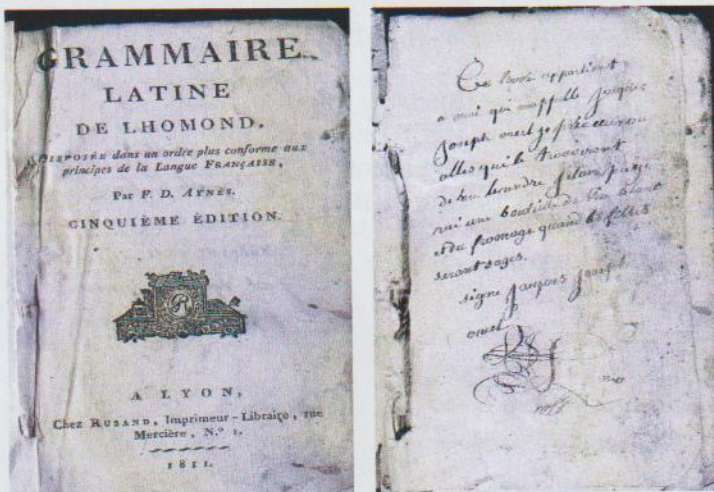 GRAMMAIRE
LATINE
DE LHOMOND,
DISPOSÉE dans un ordre plus conforme aux
principes de la Langue FRANÇAISE,
Par F. D. AYNÈS.
CINQUIÈME ÉDITION.
R
A LYON,
Chez RUSAND, Imprimeur-Libraire, rue
Mercière, N.º 1.
1811.
Ce livre appartient
a moi qui mappelle Jacques
Joseph
de
une bouteille de vin blanc
et du fromage quand les filles
seront sages.
signe Jacques Joseph